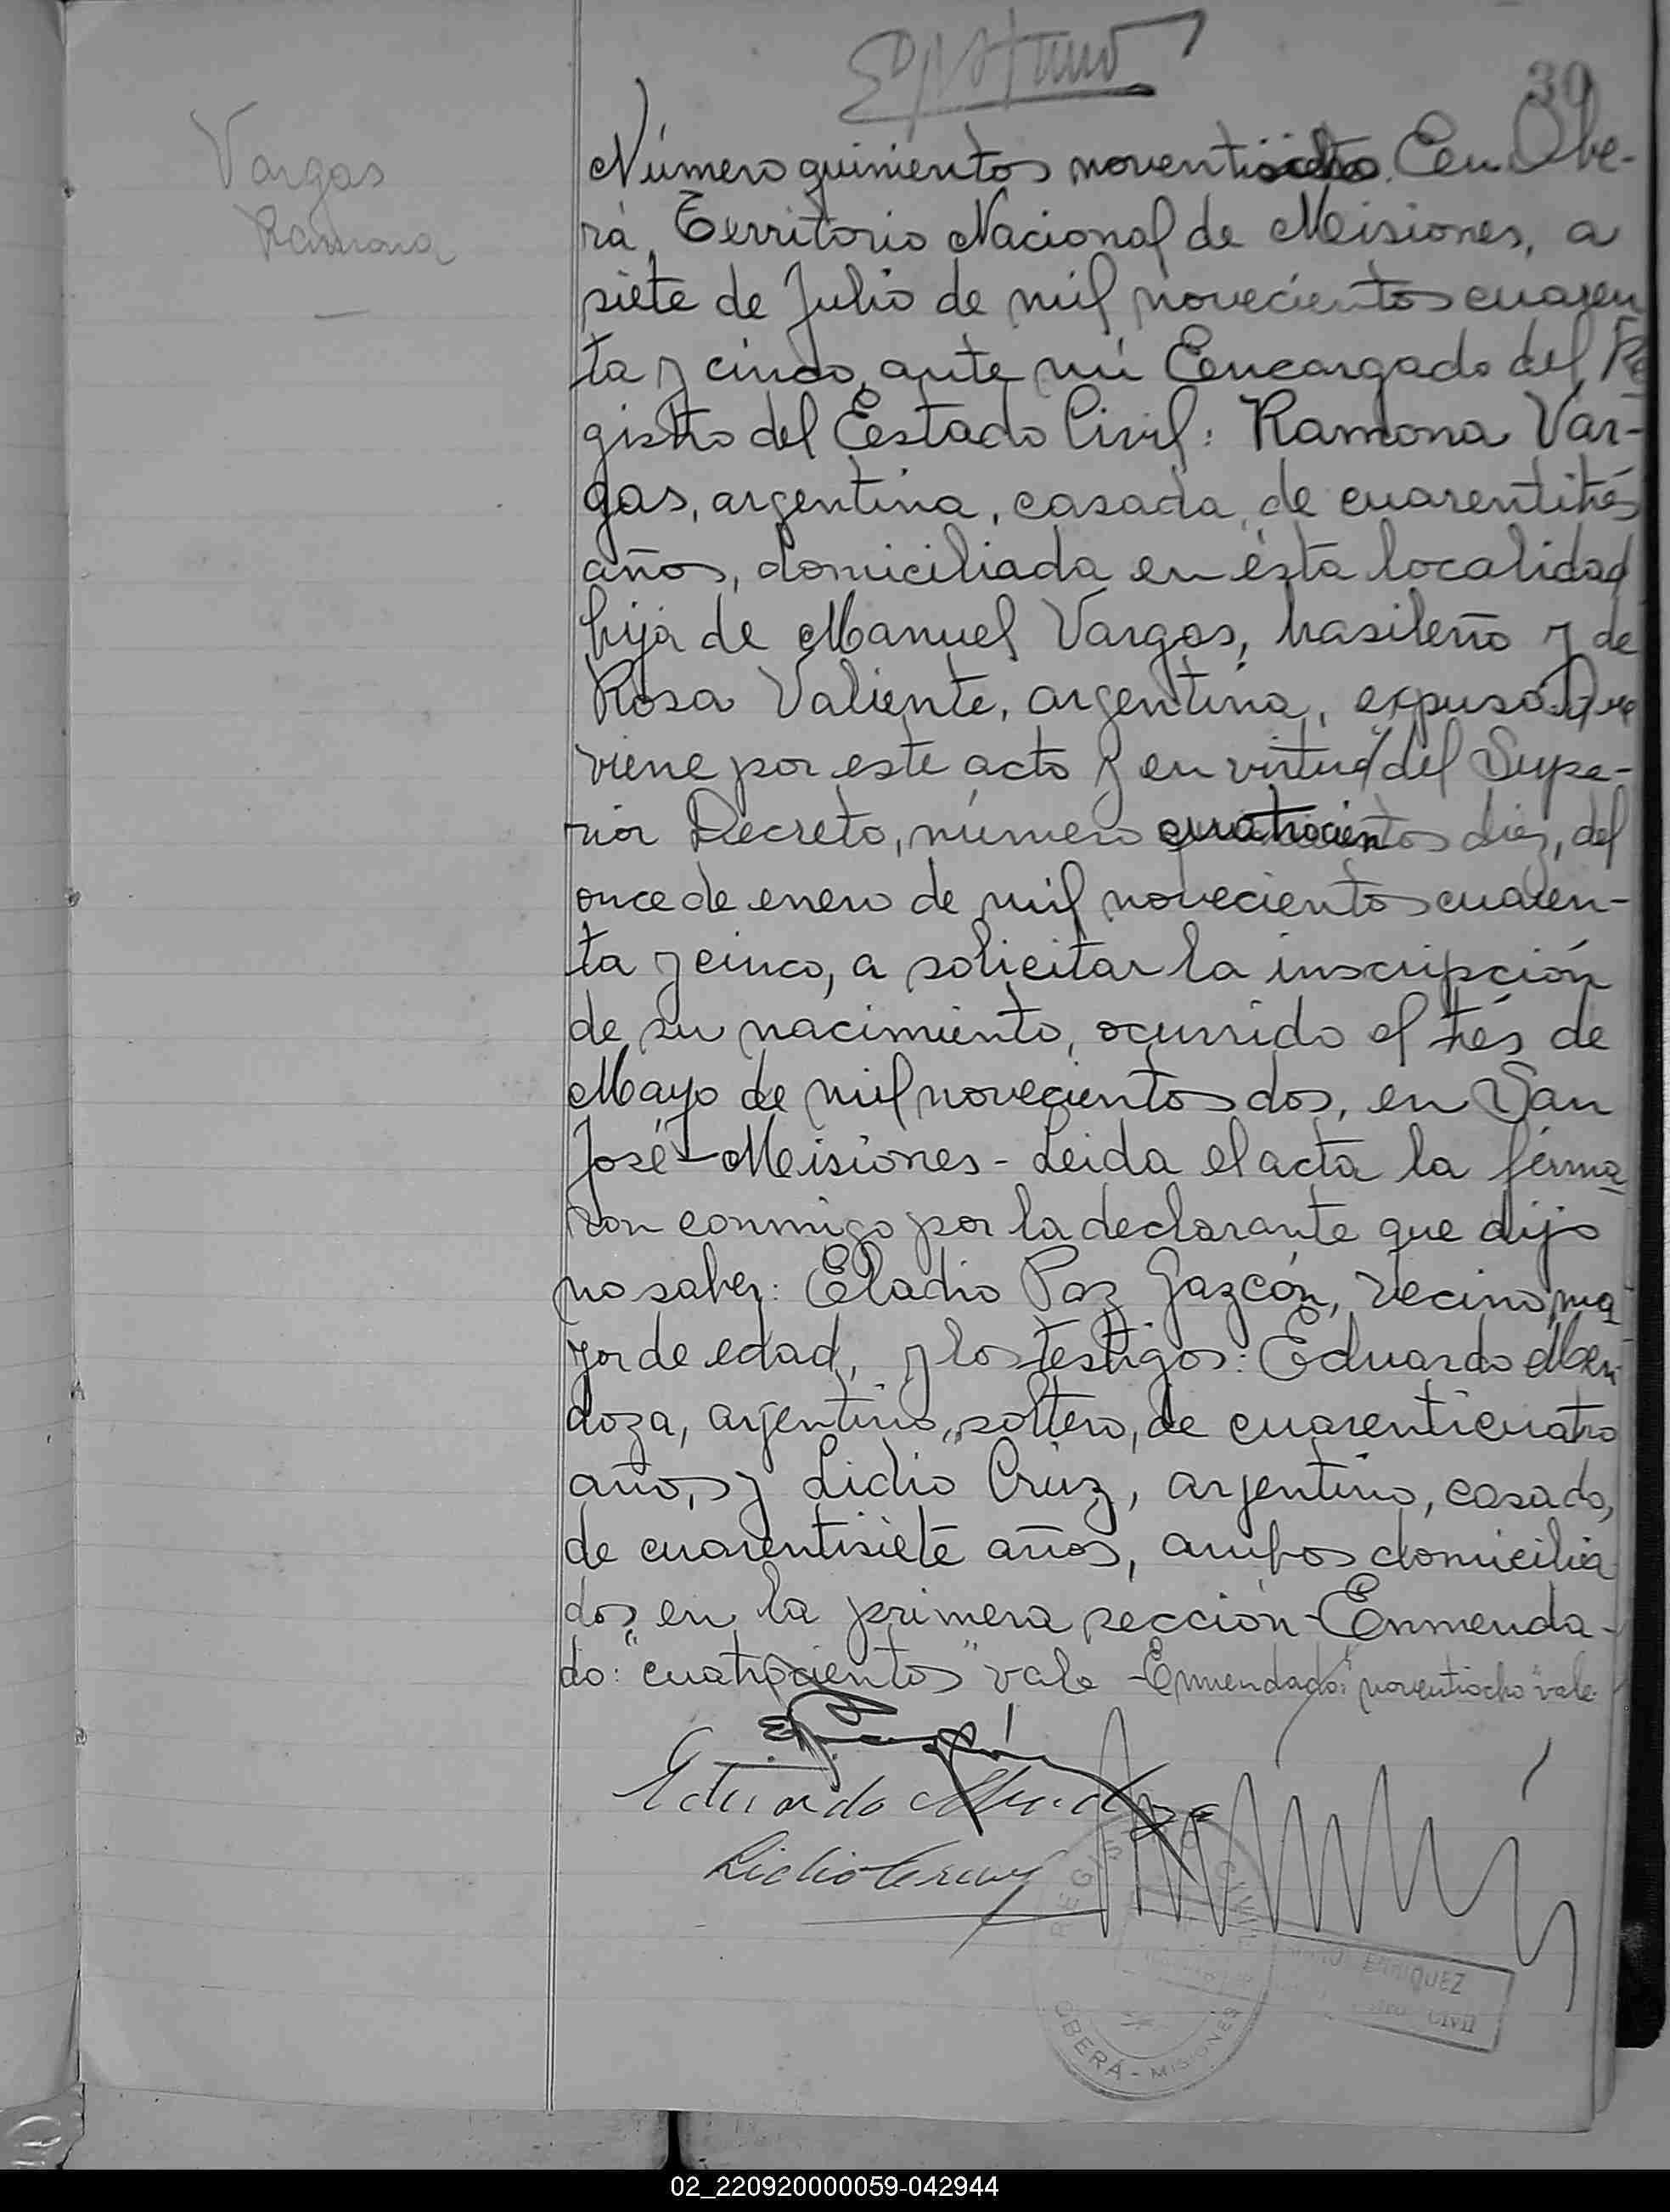 39
Vargas
Ramona
Número quinientos noventiocho. En Obe-
rá, Territorio Nacional de Misiones, a
siete de Julio de mil novecientos cuaren
ta y cinco, ante mí Encargado del Re
gistro del Estado Civil: Ramona Var-
gas, argentina, casada, de cuarentitrés
años, domiciliada en ésta localidad
hija de Manuel Vargas, brasileño y de
Rosa Valiente, argentina, expuso: Que
viene por este acto y en virtud del Supe-
rior Decreto, número cuatrocientos diez, del
once de enero de mil novecientos cuaren-
ta y cinco, a solicitar la inscripción
de su nacimiento, ocurrido el trés de
Mayo de mil novecientos dos, en San
José - Misiones - Leida el acta la firma
ron conmigo por la declarante que dijo
no saber: Eladio Paz Gazcón, vecino, ma
yor de edad, y los testigos: Eduardo Men
doza, argentino, soltero, de cuarenticuatro
años, y Lidio Cruz, argentino, casado,
de cuarentisiete años, ambos domicilia
dos en la primera sección - Enmenda-
do: "cuatrocientos" vale - Enmendado: "noventiocho" vale.
Eduardo Mendoza
Lidio Cruz
REGISTRO CIVIL
ENRIQUEZ
CIVIL
OBERÁ - MISIONES
02_220920000059-042944